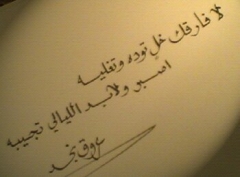 لا فارقك خلٍ توده وتغليه
اصبر ولابد الليالي تجيبه